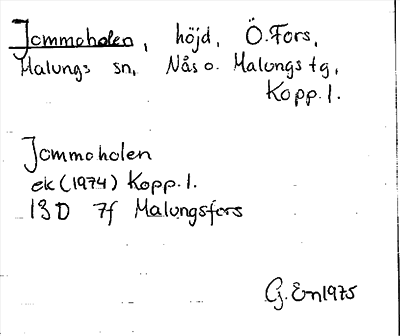 Jommoholen, höjd, Ö. Fors,
Malungs sn, Nås o. Malungs tg,
Kopp. l.
Jommoholen
ek (1974) Kopp. l.
13D 7f Malungsfors
G. En 1975